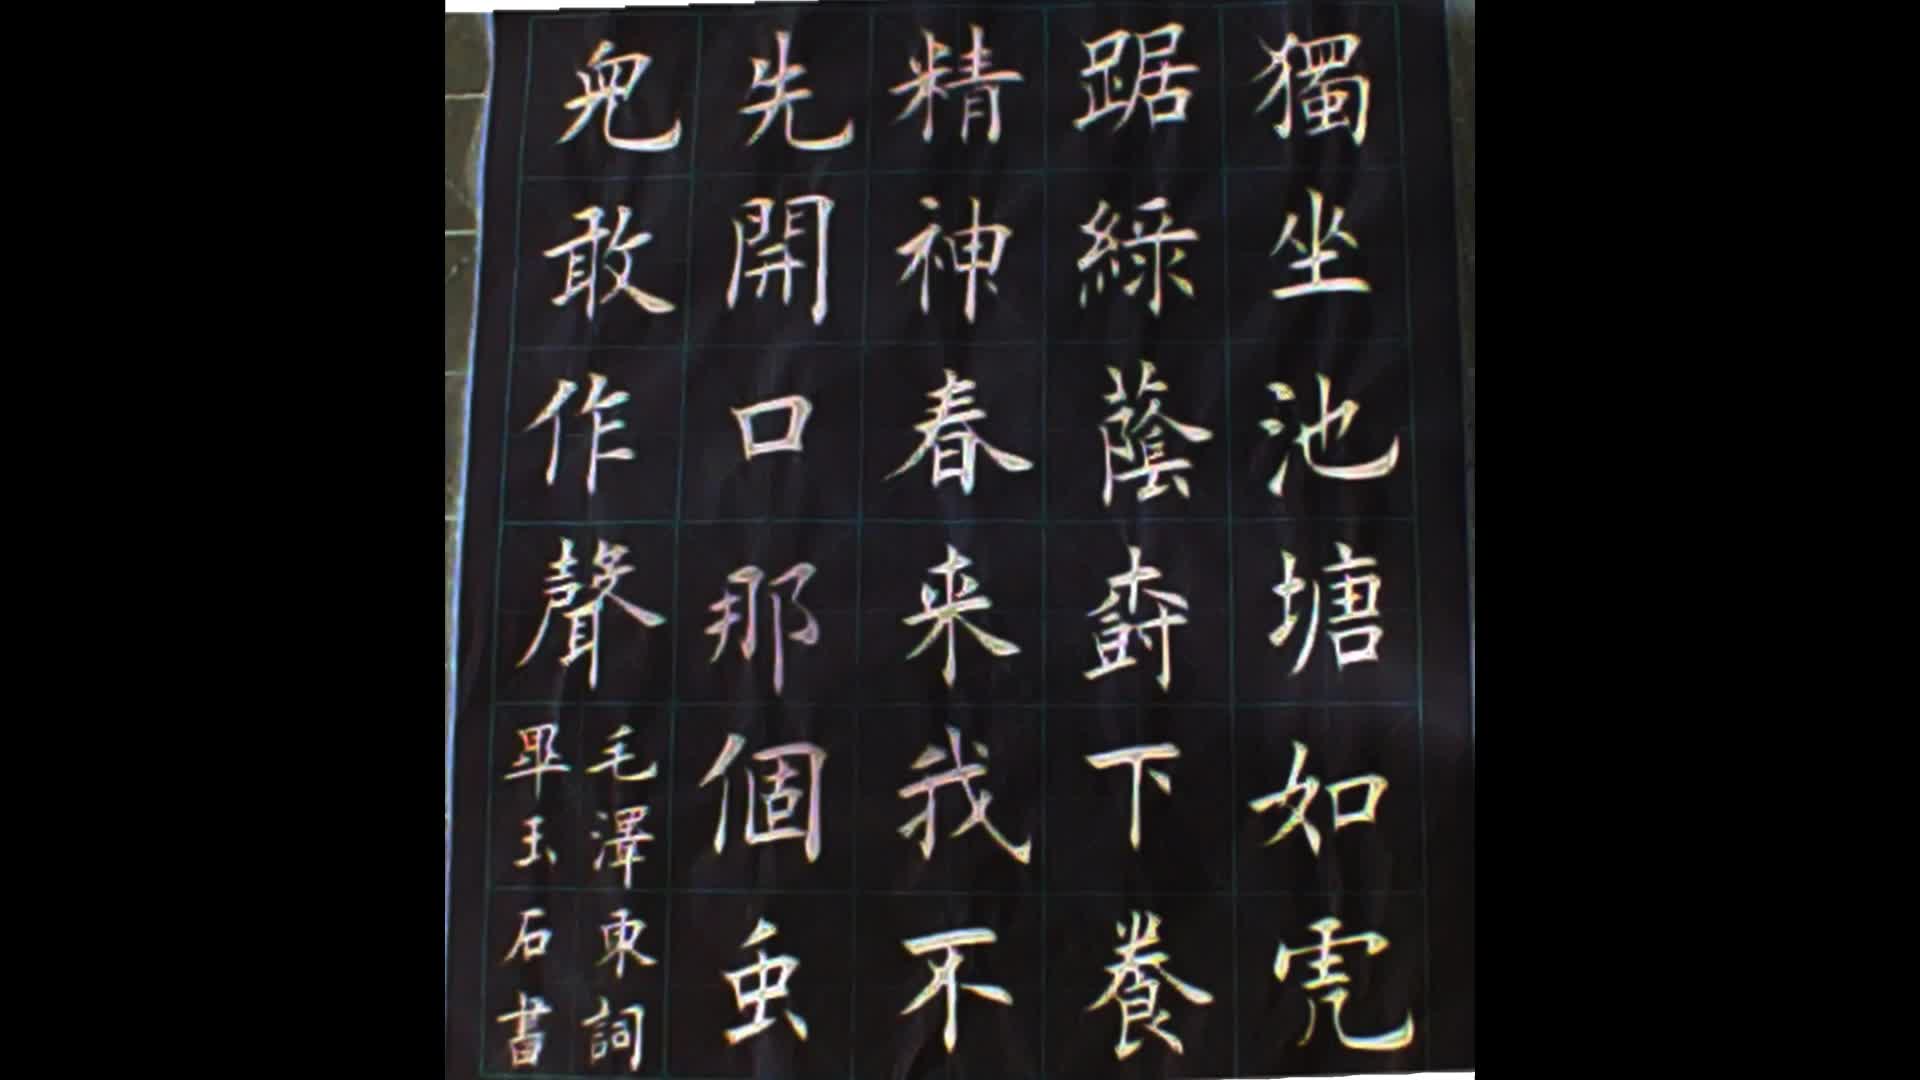 獨坐池塘如虎
踞綠蔭樹下養
精神春来我不
先開口那個虫
兒敢作聲
毛澤東詞
玉石書